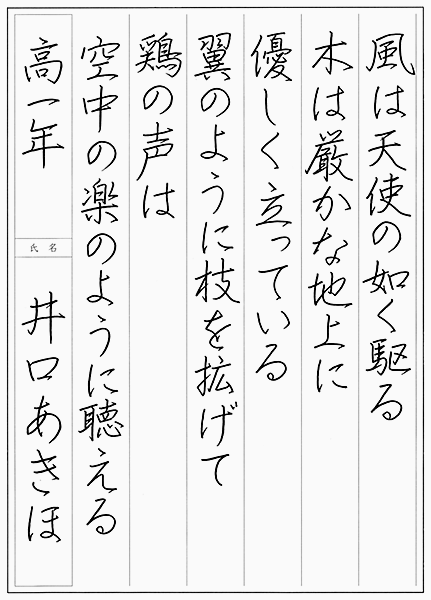 風は天使の如く駆る
木は厳かな地上に
優しく立っている
翼のように枝を拡げて
鶏の声は
空中の楽のように聴える
高一年
氏名
井口あきほ